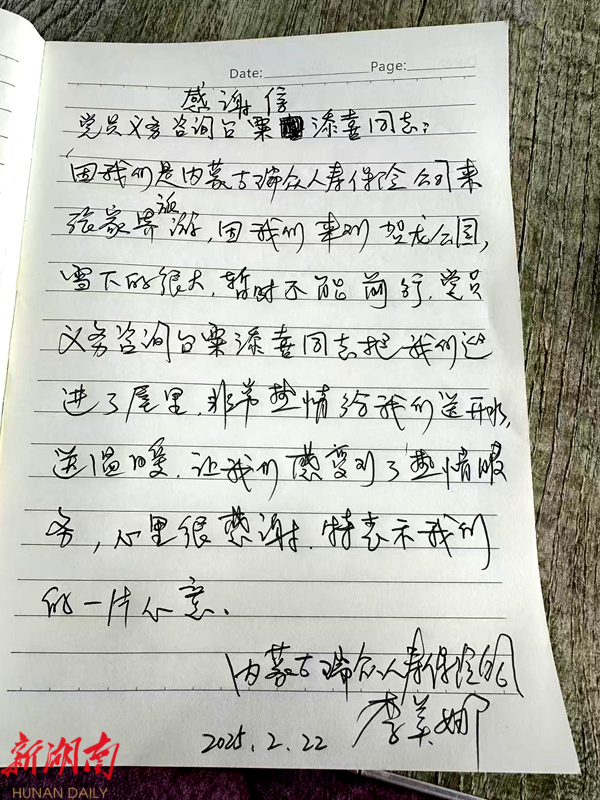 Date: Page:
感谢信
党员义务咨询台粟漆喜同志:
因我们是内蒙古瑞众人寿保险公司来
张家界旅游,因我们来到贺龙公园,
雪下的很大,暂时不能前行,党员
义务咨询台粟漆喜同志把我们迎
进了屋里,非常热情给我们送开水,
送温暖,让我们感受到了热情服
务,心里很感谢.特表示我们
的一片心意、
内蒙古瑞众人寿保险的
李美娜
2025.2.22
新湖南
HUNAN DAILY